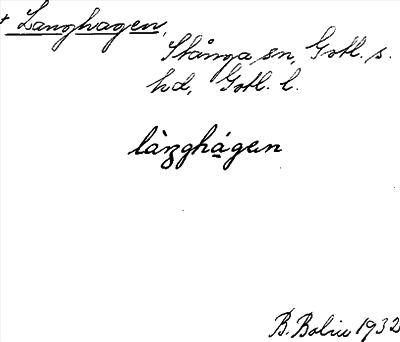 + Langhagen,
Stånga sn, Gotl. s.
hd, Gotl. l.
làŋghá̱gen
B. Bolin 1932